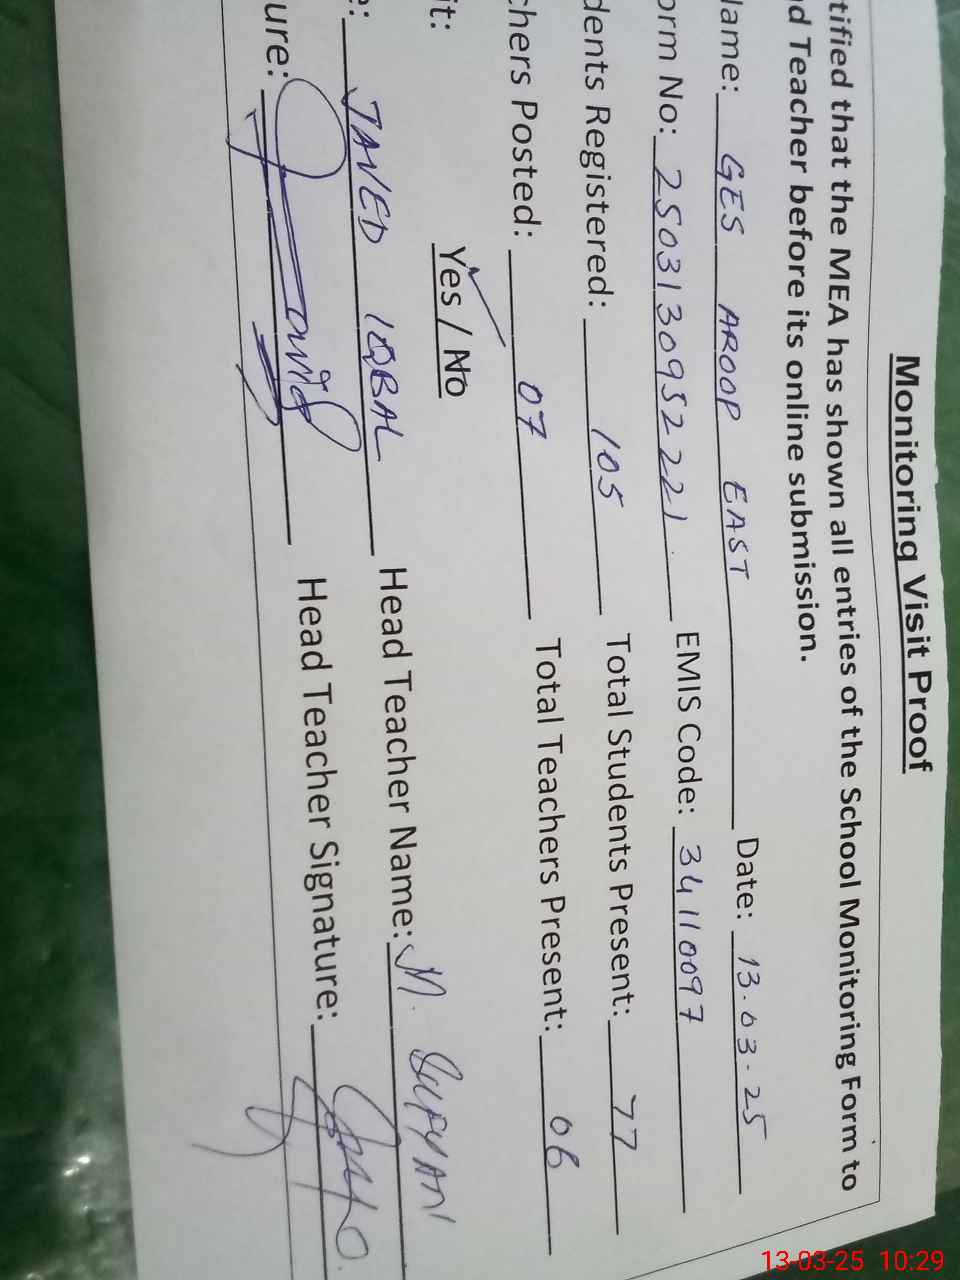 Monitoring Visit Proof
tified that the MEA has shown all entries of the School Monitoring Form to
d Teacher before its online submission.
Name: GES AROOP EAST Date: 13.03.25
orm No: 2503130952221 EMIS Code: 34110097
dents Registered: 105 Total Students Present: 77
chers Posted: 07 Total Teachers Present: 06
it: Yes / No
e: JAVED IQBAL Head Teacher Name: M. SUFYAN
ure: Head Teacher Signature:
13-03-25 10:29